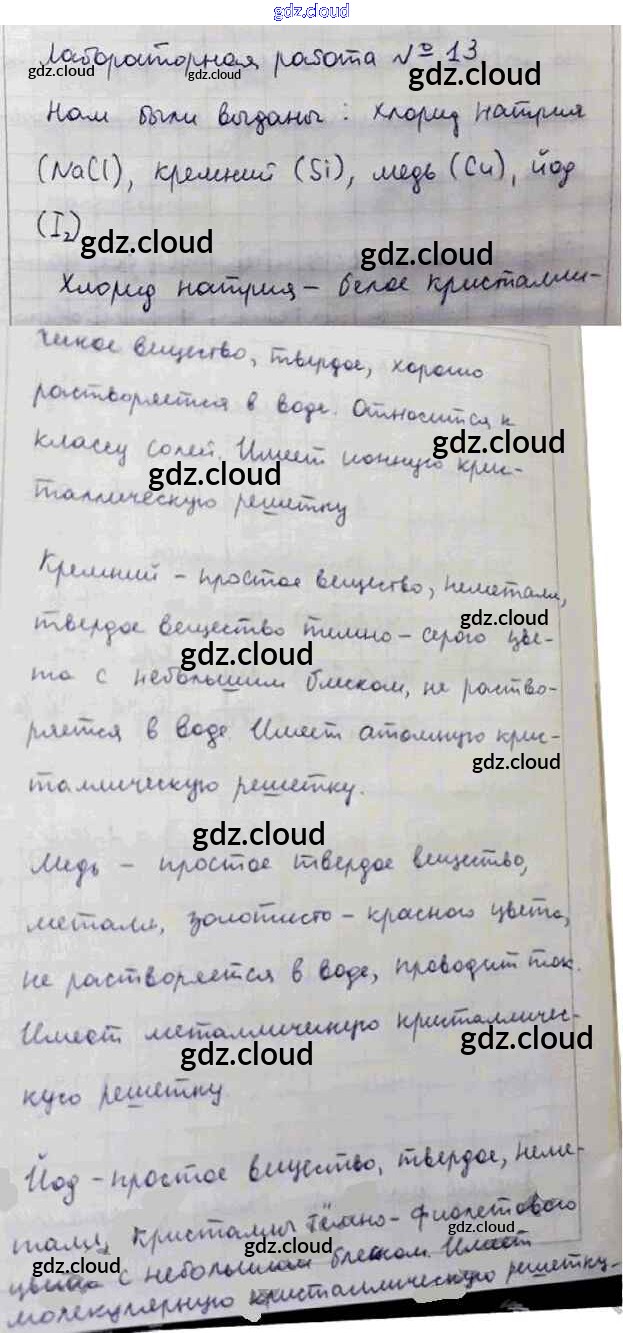 gdz.cloud
Лабораторная работа № 13
gdz.cloud gdz.cloud gdz.cloud
Нам были выданы: хлорид натрия
(NaCl), кремний (Si), медь (Cu), йод
(I₂)
gdz.cloud gdz.cloud
Хлорид натрия – белое кристалли-
ческое вещество, твердое, хорошо
растворяется в воде. Относится к
gdz.cloud
классу солей. Имеет ионную крис-
gdz.cloud
таллическую решетку
Кремний – простое вещество, неметалл,
gdz.cloud
твердое вещество тёмно-серого цве-
gdz.cloud
та с небольшим блеском, не раство-
ряется в воде. Имеет атомную крис-
gdz.cloud
таллическую решетку.
gdz.cloud
Медь – простое твердое вещество,
металл, золотисто-красного цвета,
не растворяется в воде, проводит ток.
Имеет металлическую кристалличес-
gdz.cloud gdz.cloud
кую решетку.
Йод – простое вещество, твердое, неме-
талл, кристаллы тёмно-фиолетового
gdz.cloud gdz.cloud gdz.cloud
цвета с небольшим блеском. Имеет
молекулярную кристаллическую решетку.